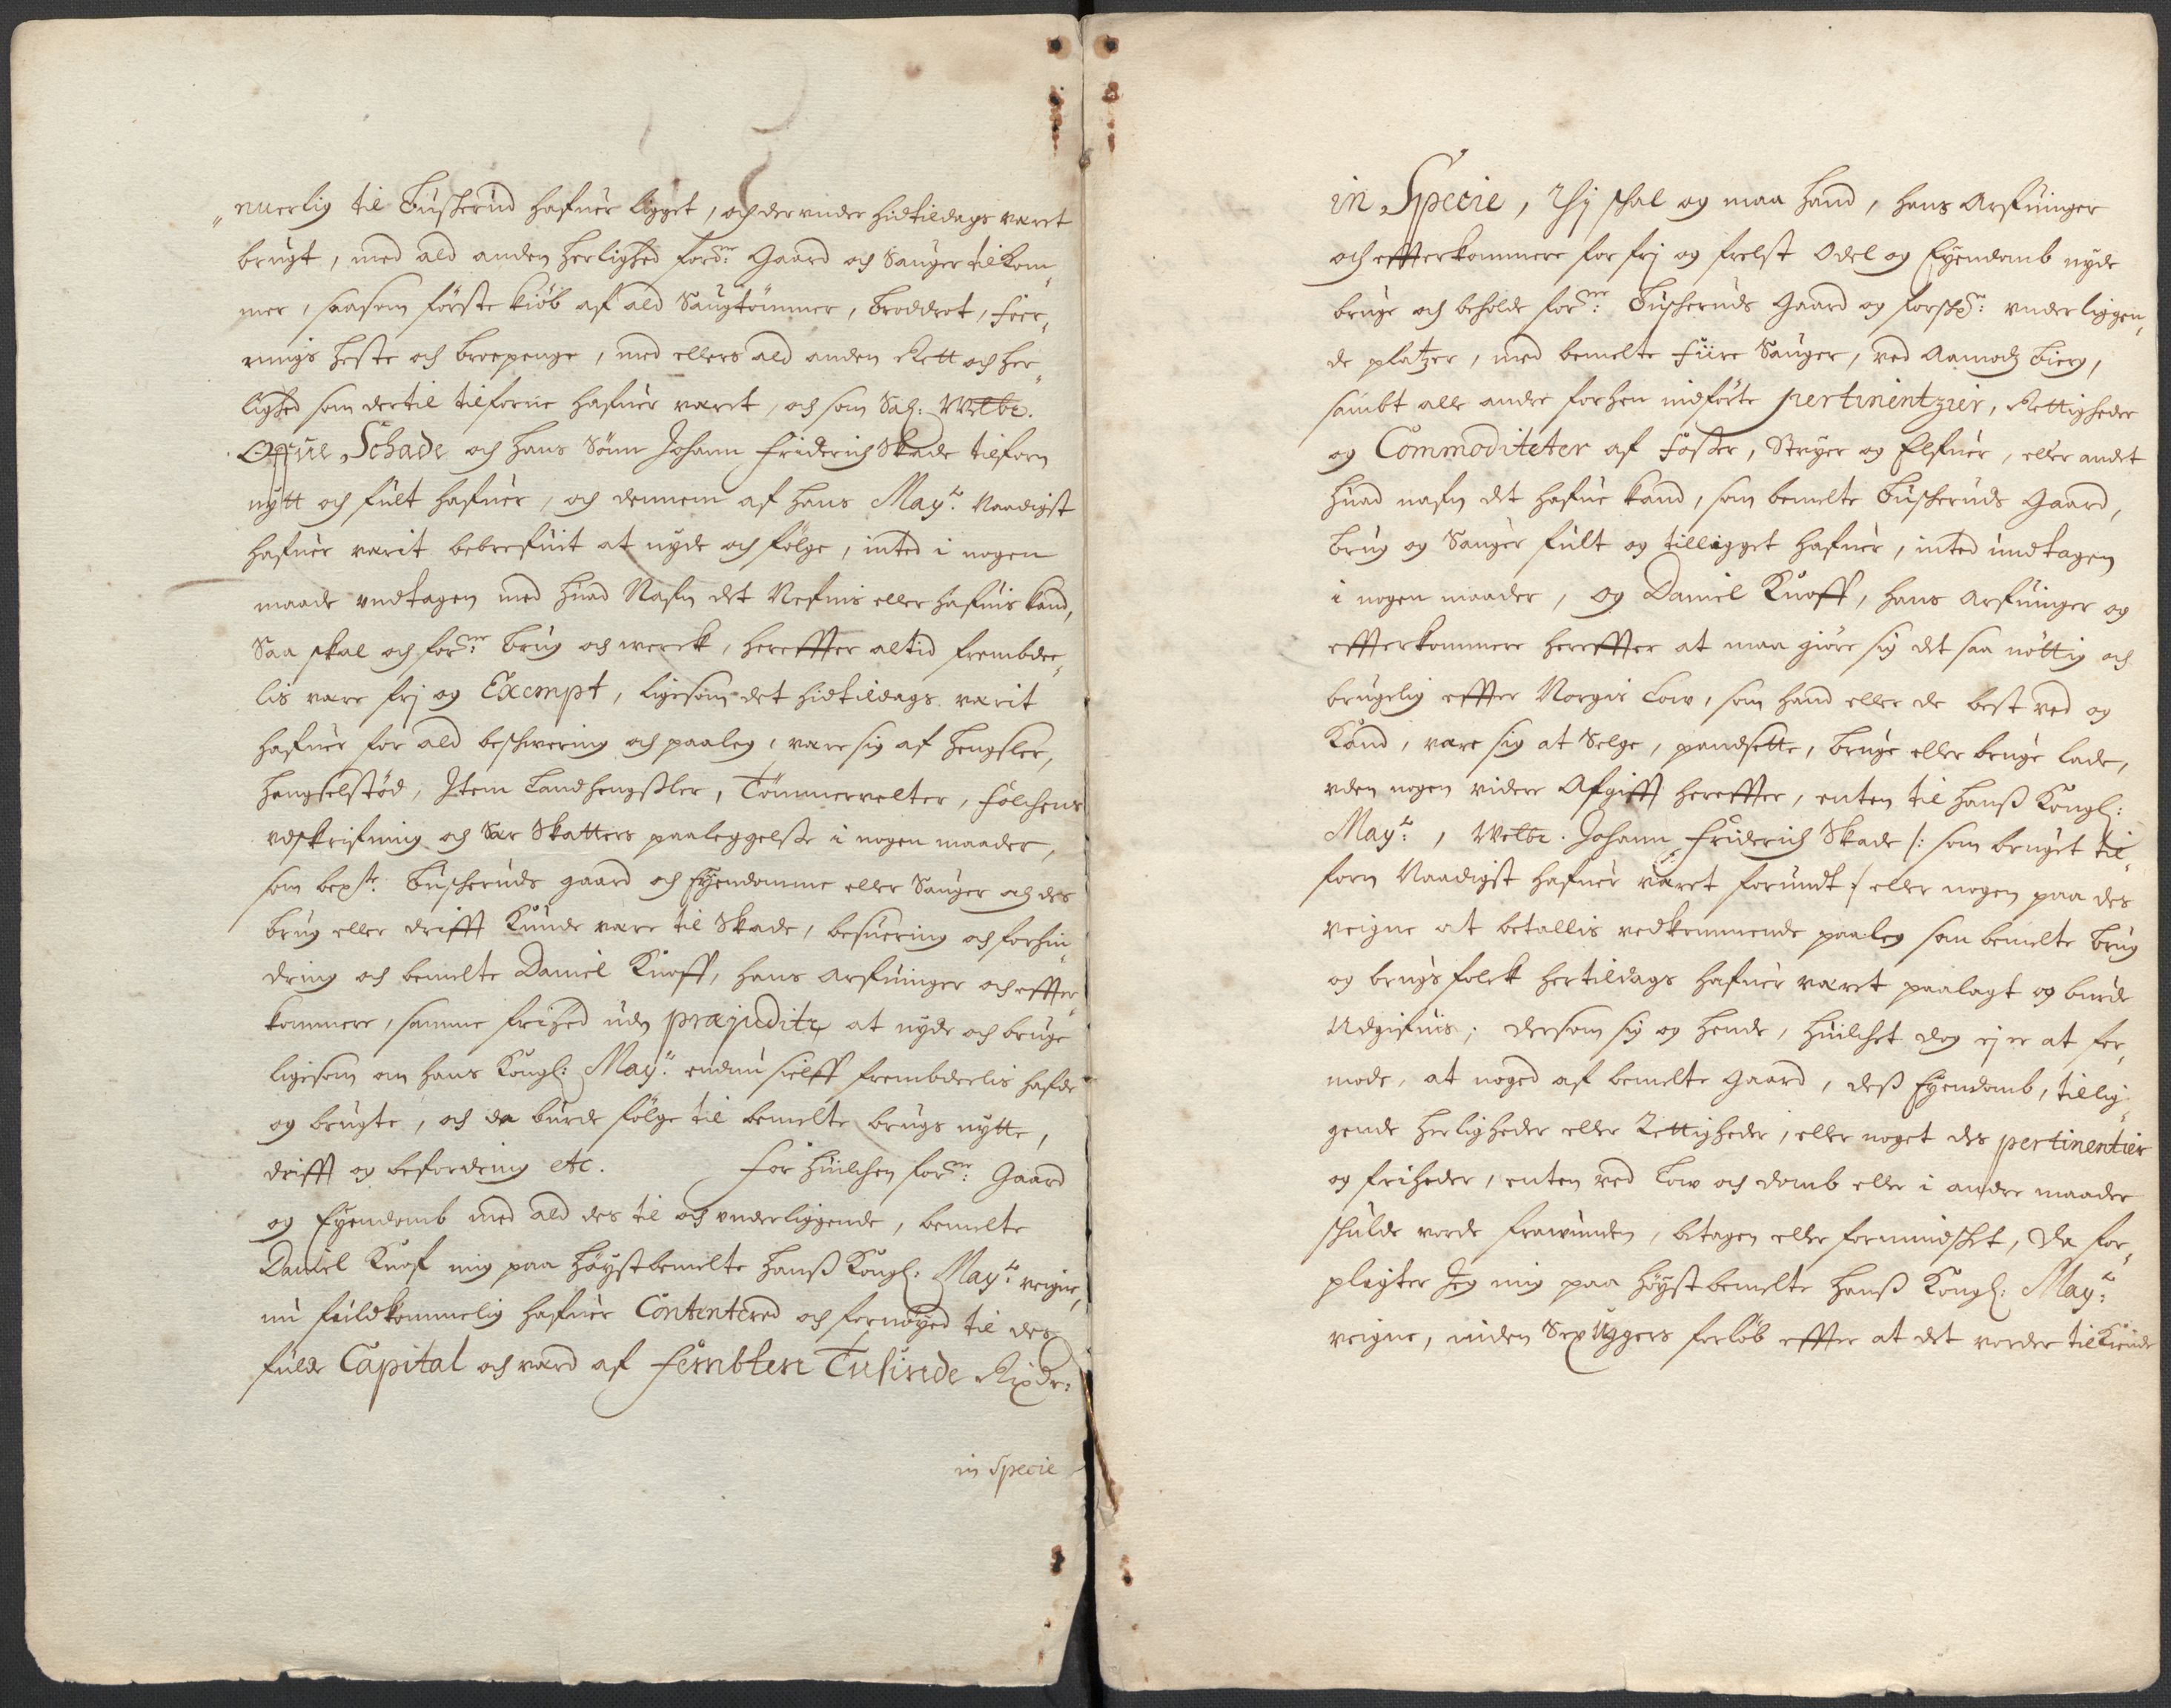 „nuerlig til Buskerud hafuer ligget, och der vnder hidtildags veret
brugt, med ald anden herlighed forne: Gaard och Sauger tilkom„
mer, saasom förste kiöb af ald Saugtömmer, Broddrot, Foer„
rings heste och broepenge, med ellers ald anden Rett och her„
lighed som dertil tilforne hafuer veret, och som Sal: Welbr.
Offue Schade och hans Sönn Johann Friderich Skade tilforn
nytt och fült hafuer, och dennem af hans Mayt: Naadigst
hafuer verit bebrefuit at nyde och fölge, inted i nogen
maade vndtagen med huad Nafn det Nefnis eller hafuis kand,
Saa skal och forne: Brug och werck, hereffter altid frembdee„
lis vere frj og Exempt, ligesom det hidtildags verit
hafuer for ald beschwering och paaleg, vere sig af hengsler,
hengselstød, Item Landhengsler, Tömmervelter, Folchens
vdskrifning och Sær Skatters paaleggelse i nogen maader,
som bete: Buscheruds gaard och Eyendomme eller Sauger och des
brug eller drifft kunde vere til Skade, besuering och forhin„
dring och bemelte Daniel Knoff, hans Arfuinger och effter„
kommere, samme frihed uden præjuditz at nyde och bruge
ligesom om hans Kongl: Mayt: endnu sielff frembdeelis hafde
og brugte, och da burde fölge til bemelte brugs nytte,
drifft og befordring etc. For huilchen forne: Gaard
og Eyendomb med ald des til och vnderliggende, bemelte
Daniel Knof mig paa Höystbemelte Hanß Kongl: Mayts: veigne,
nu fuldkommelig hafuer Contentered och fornöyed til des
fulde Capital och verd af Fembten Tusinde Rixdr:
in Specie
in Specie, Thj schal og maa hand, hans Arfuinger
och effterkommere for frj og frelst Odel og Eyendomb nyde
bruge och beholde forne: Buscheruds Gaard og forschr: vnderliggen„
de platzer, med bemelte Fiire Sauger, ved Aamodz Bierg,
sambt alle andre forhen indförte pertinentzier, Rettigheder
og Commoditeter af Foßer, Stryer og Elfuer, eller andet
huad nafn det hafue kand, som bemelte Buscheruds Gaard,
Brug og Sauger fult og tilligget hafuer, inted undtagen
i nogen maader, og Daniel Knoff, hans Arfuinger og
effterkommere hereffter at maa giöre sig det saa nöttig och
brugelig effter Norgis Low, som hand eller de best ved og
Kand, vere sig at Selge, pandsette, bruge eller bruge lade,
vden nogen videre Afgifft hereffter, enten til Hanß Kongl:
Mayt:, Welbr. Johann Friderich Skade /: som bruget til„
forn Naadigst hafuer veret forundt :/ eller nogen paa des
veigne at betallis vedkommende paaleg som bemelte Brug
og brugs folck hertildags hafuer veret paalagt og burde
Udgifuis; dersom sig og hende, huilchet dog ej er at for„
mode, at noged af bemelte Gaard, deß Eyendomb, tillig„
gende herligheder eller Rettigheder, eller noget des pertinentier
og friheder, enten ved Low och domb eller i andre maader
schulde vorde frawunden, betagen eller formindschet, da for„
pligter Jeg mig paa höystbemelte Hanß Kongl: Mayts:
veigne, inden Sex Uggers forlöb effter at det vorder tilkiende